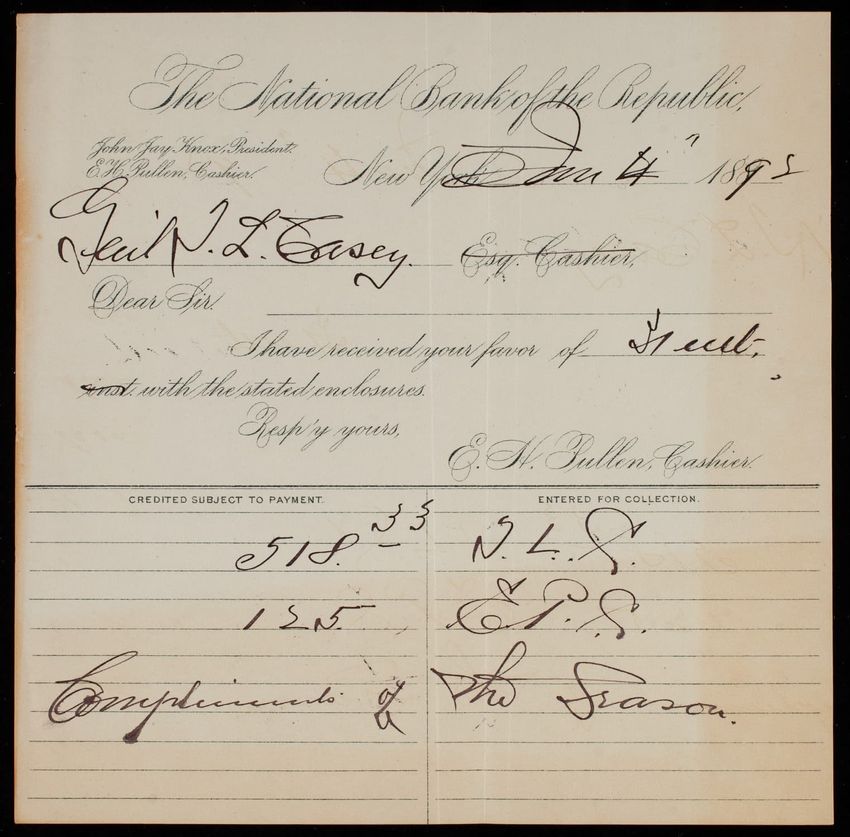 The National Bank of the Republic,
John Jay Knox, President.
E.H. Pullen, Cashier.
New York Jan 4" 1892
Genl T. L. Casey. Esq. Cashier,
Dear Sir.
I have received your favor of 31 ult.,
inst. with the stated enclosures.
Resp'y yours,
E. H. Pullen, Cashier.
CREDITED SUBJECT TO PAYMENT. ENTERED FOR COLLECTION.
518.33 T. L. C.
125 E. P. C.
Compliments of the Season.